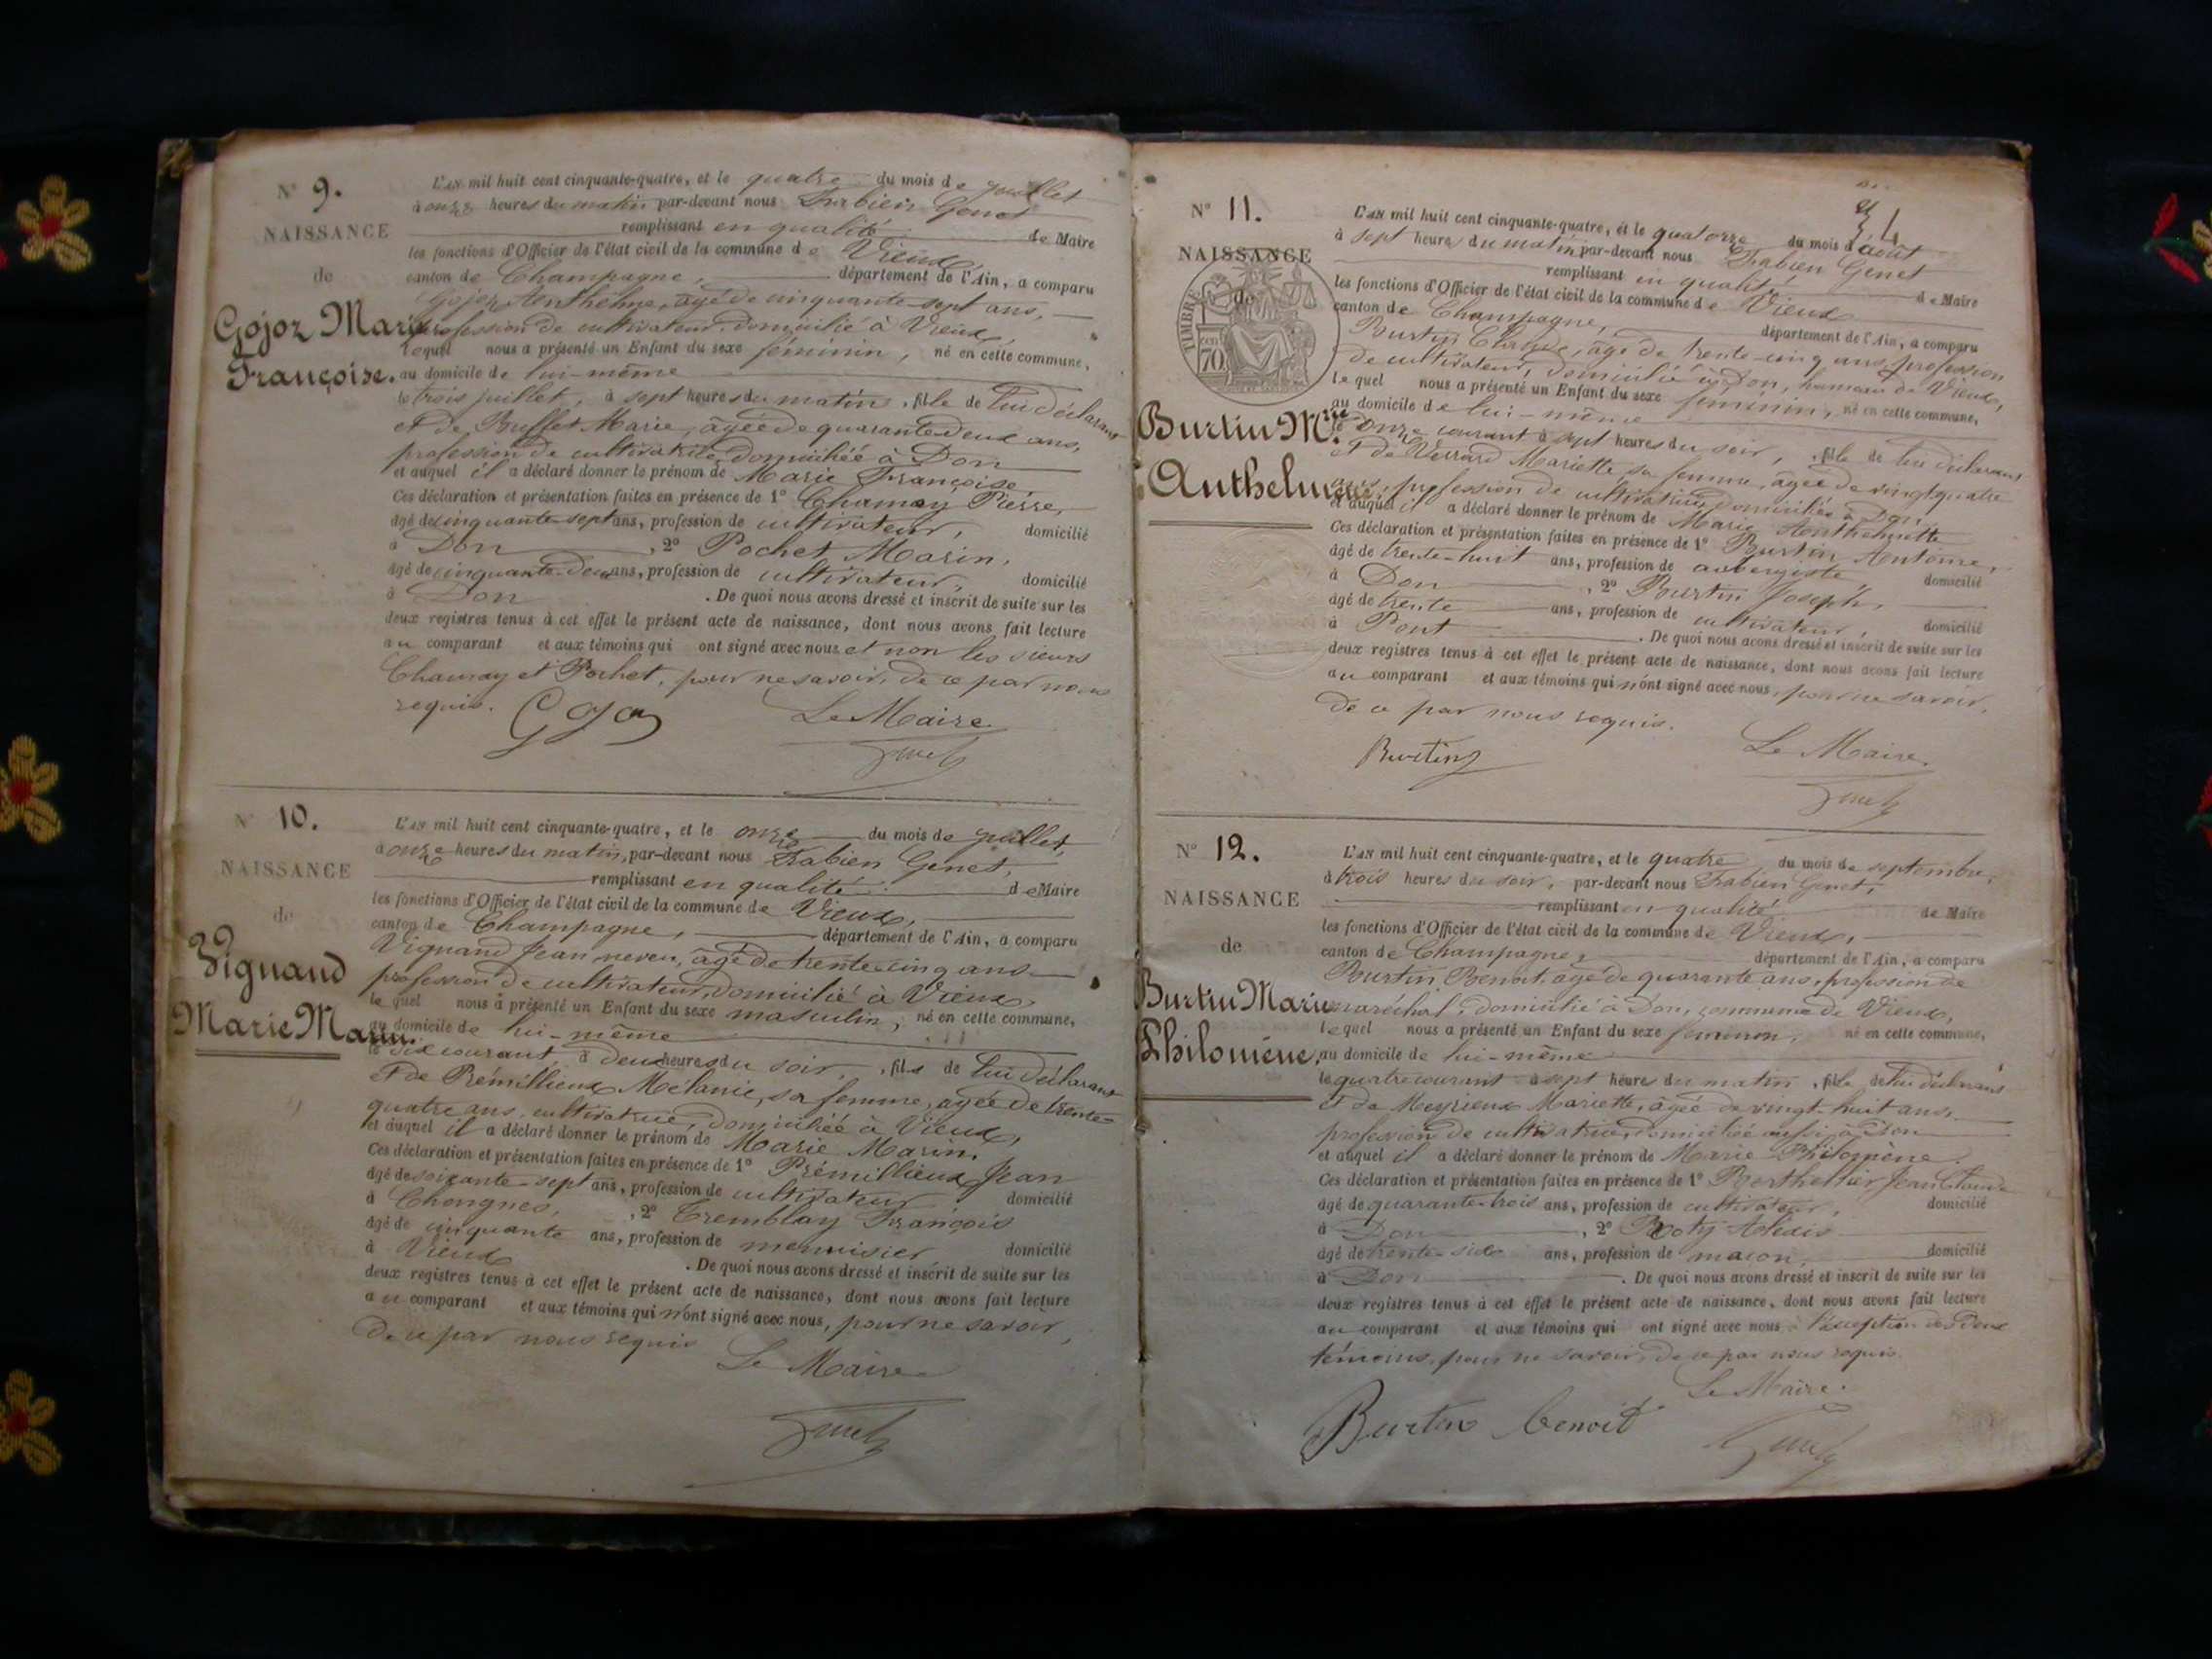 N° 9.
NAISSANCE
de
Gojoz Marie
Françoise.
L'AN mil huit cent cinquante-quatre, et le quatre du mois de juillet
à onze heures du matin par-devant nous Fabien Genet
remplissant en qualité de Maire
les fonctions d'Officier de l'état civil de la commune de Vieux,
canton de Champagne, département de l'Ain, a comparu
Gojoz Anthelme, âgé de cinquante-sept ans,
profession de cultivateur, domicilié à Vieux,
lequel nous a présenté un Enfant du sexe féminin, né en cette commune,
au domicile de lui-même
le trois juillet, à sept heures du matin, fille de lui déclarant
et de Buffet Marie, âgée de quarante-deux ans,
profession de cultivatrice, domiciliée à Don
et auquel il a déclaré donner le prénom de Marie Françoise
Ces déclaration et présentation faites en présence de 1° Chamay Pierre,
âgé de cinquante-sept ans, profession de cultivateur, domicilié
à Don, 2° Pochet Marin,
âgé de cinquante-deux ans, profession de cultivateur, domicilié
à Don. De quoi nous avons dressé et inscrit de suite sur les
deux registres tenus à cet effet le présent acte de naissance, dont nous avons fait lecture
au comparant et aux témoins qui ont signé avec nous et non les sieurs
Chamay et Pochet, pour ne savoir, de ce par nous
requis.
Le Maire
Genet
N° 10.
NAISSANCE
de
Vignand
Marie Marin.
L'AN mil huit cent cinquante-quatre, et le onze du mois de juillet,
à onze heures du matin, par-devant nous Fabien Genet,
remplissant en qualité de Maire
les fonctions d'Officier de l'état civil de la commune de Vieux,
canton de Champagne, département de l'Ain, a comparu
Vignand Jean neveu, âgé de trente-cinq ans
profession de cultivateur, domicilié à Vieux,
lequel nous a présenté un Enfant du sexe masculin, né en cette commune,
au domicile de lui-même
le dix courant, à deux heures du soir, fils de lui déclarant
et de Prémillieux Mélanie, sa femme, âgée de trente-
quatre ans, cultivatrice, domiciliée à Vieux,
et auquel il a déclaré donner le prénom de Marie Marin.
Ces déclaration et présentation faites en présence de 1° Prémillieux Jean
âgé de soixante-sept ans, profession de cultivateur domicilié
à Chongnes, 2° Tremblay François
âgé de cinquante ans, profession de menuisier domicilié
à Vieux. De quoi nous avons dressé et inscrit de suite sur les
deux registres tenus à cet effet le présent acte de naissance, dont nous avons fait lecture
au comparant et aux témoins qui n'ont signé avec nous, pour ne savoir,
de ce par nous requis
Le Maire
Genet
N° 11.
NAISSANCE
de
TIMBRE
70
Burtin Mie.
Anthelmette
L'AN mil huit cent cinquante-quatre, et le quatorze du mois d'août
à sept heures du matin par-devant nous Fabien Genet
remplissant en qualité de Maire
les fonctions d'Officier de l'état civil de la commune de Vieux
canton de Champagne, département de l'Ain, a comparu
Burtin Claude, âgé de trente-cinq ans, profession
de cultivateur, domicilié à Don, hameau de Vieux,
lequel nous a présenté un Enfant du sexe féminin, né en cette commune,
au domicile de lui-même
le onze courant à sept heures du soir, fille de lui déclarant
et de Mariette, sa femme, âgée de vingt-quatre
ans, profession de cultivatrice, domiciliée à Don,
et auquel il a déclaré donner le prénom de Marie Anthelmette
Ces déclaration et présentation faites en présence de 1° Burtin Antoine,
âgé de trente-huit ans, profession de aubergiste, domicilié
à Don, 2° Burtin Joseph,
âgé de trente ans, profession de cultivateur, domicilié
à Pont. De quoi nous avons dressé et inscrit de suite sur les
deux registres tenus à cet effet le présent acte de naissance, dont nous avons fait lecture
au comparant et aux témoins qui n'ont signé avec nous, pour ne savoir,
de ce par nous requis.
Burtin
Le Maire.
Genet
N° 12.
NAISSANCE
de
Burtin Marie
Philomène.
L'AN mil huit cent cinquante-quatre, et le quatre du mois de septembre,
à trois heures du soir, par-devant nous Fabien Genet,
remplissant en qualité de Maire
les fonctions d'Officier de l'état civil de la commune de Vieux,
canton de Champagne, département de l'Ain, a comparu
Burtin Benoit, âgé de quarante ans, profession de
maréchal, domicilié à Don, commune de Vieux,
lequel nous a présenté un Enfant du sexe féminin, né en cette commune,
au domicile de lui-même
le quatre courant à sept heures du matin, fille de lui déclarant
et de Meyrieux Mariette, âgée de vingt-huit ans,
profession de cultivatrice, domiciliée aussi à Don
et auquel il a déclaré donner le prénom de Marie Philomène.
Ces déclaration et présentation faites en présence de 1° Berthellier Jean Claude
âgé de quarante-trois ans, profession de cultivateur, domicilié
à Don, 2°
âgé de trente-six ans, profession de maçon, domicilié
à Don. De quoi nous avons dressé et inscrit de suite sur les
deux registres tenus à cet effet le présent acte de naissance, dont nous avons fait lecture
au comparant et aux témoins qui ont signé avec nous à l'exception des deux
témoins, pour ne savoir, de ce par nous requis.
Le Maire.
Burtin benoit
Genet